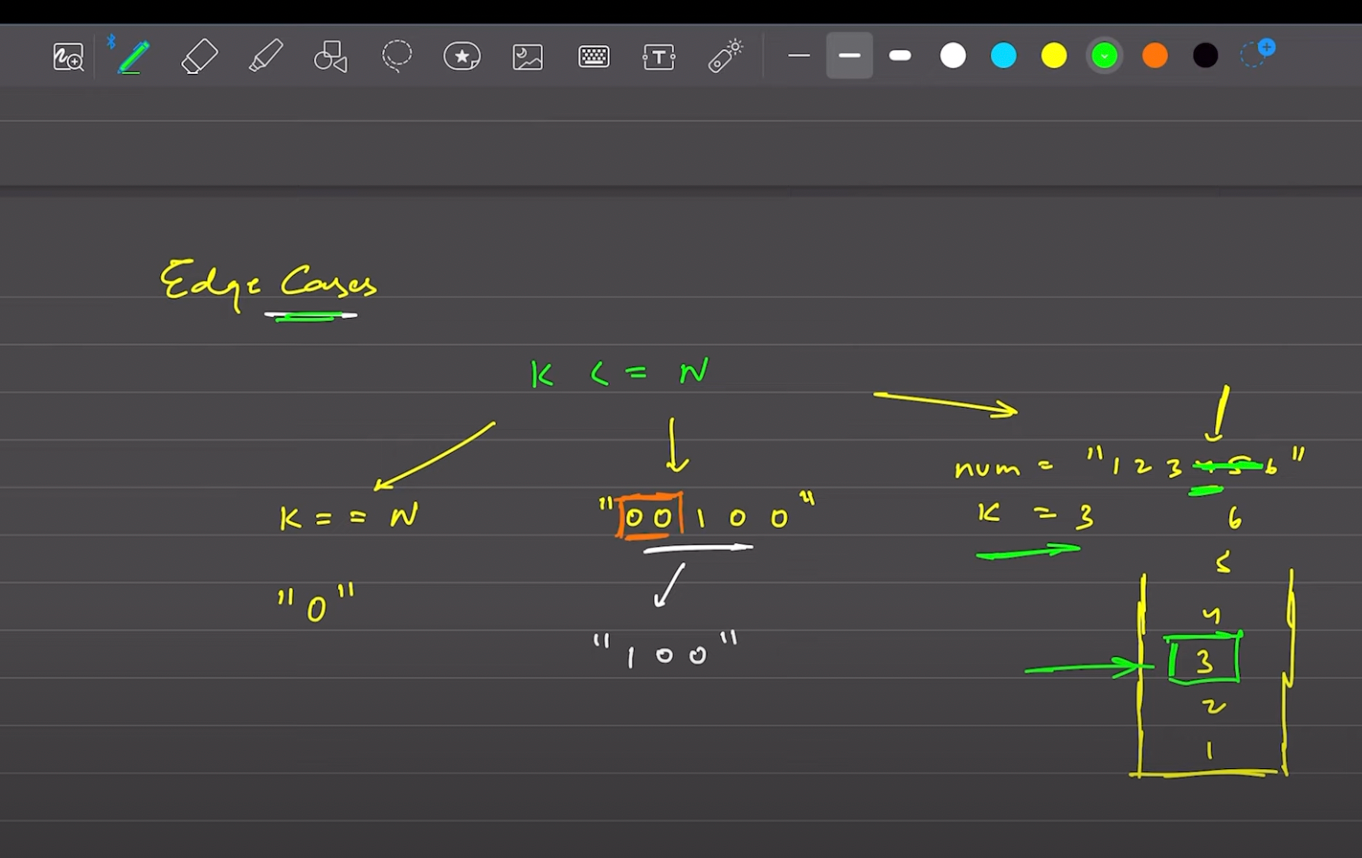 T
Edge Cases
K < = N
K = = N
"0"
"00100"
"100"
num = "123456"
K = 3
6
5
4
3
2
1